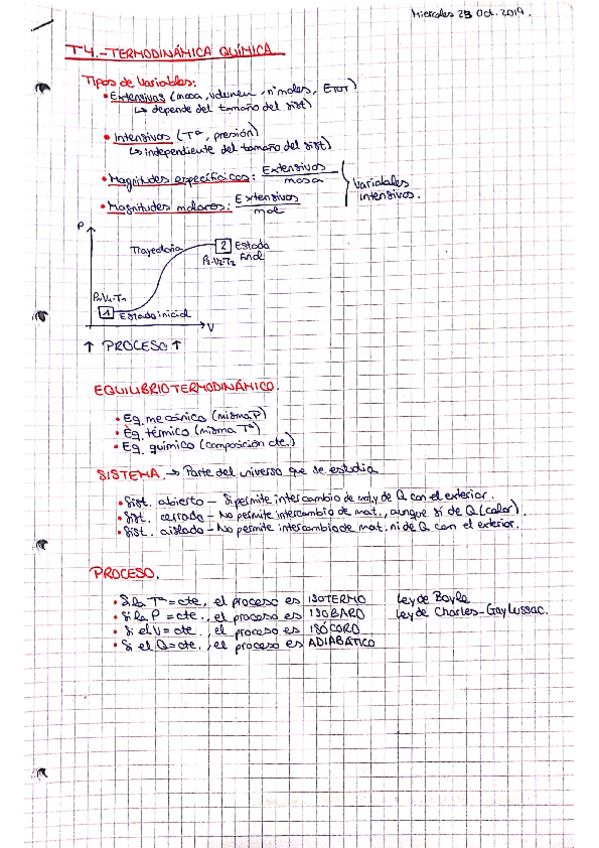 Miercoles 23 Oct. 2019.
T4.-TERMODINÁMICA QUÍMICA
Tipos de Variables:
• Extensivas (masa, volumen, nº moles, ETOT)
↳ depende del tamaño del sist)
• Intensivos (Tª, presión)
↳ independiente del tamaño del sist)
• Magnitudes específicas: Extensivos / masa
• Magnitudes molares: Extensivos / mol
} Variables intensivos.
P
Trayectoria
2 Estado Final
P2·V2·T2
P1·V1·T1
1 Estado inicial
V
↑ PROCESO ↑
EQUILIBRIO TERMODINÁMICO.
• Eq. mecánico (misma P)
• Eq. térmico (misma Tª)
• Eq. químico (composición cte.)
SISTEMA. → Parte del universo que se estudia
• Sist. abierto – Si permite intercambio de y de Q con el exterior.
• Sist. cerrado – No permite intercambio de mat., aunque sí de Q (calor).
• Sist. aislado – No permite intercambio de mat. ni de Q con el exterior.
PROCESO.
• Si la Tª = cte., el proceso es ISOTERMO Ley de Boyle
• Si la P = cte., el proceso es ISOBARO Ley de Charles-Gay Lussac.
• Si el V = cte., el proceso es ISÓCORO
• Si el Q = cte., el proceso es ADIABÁTICO